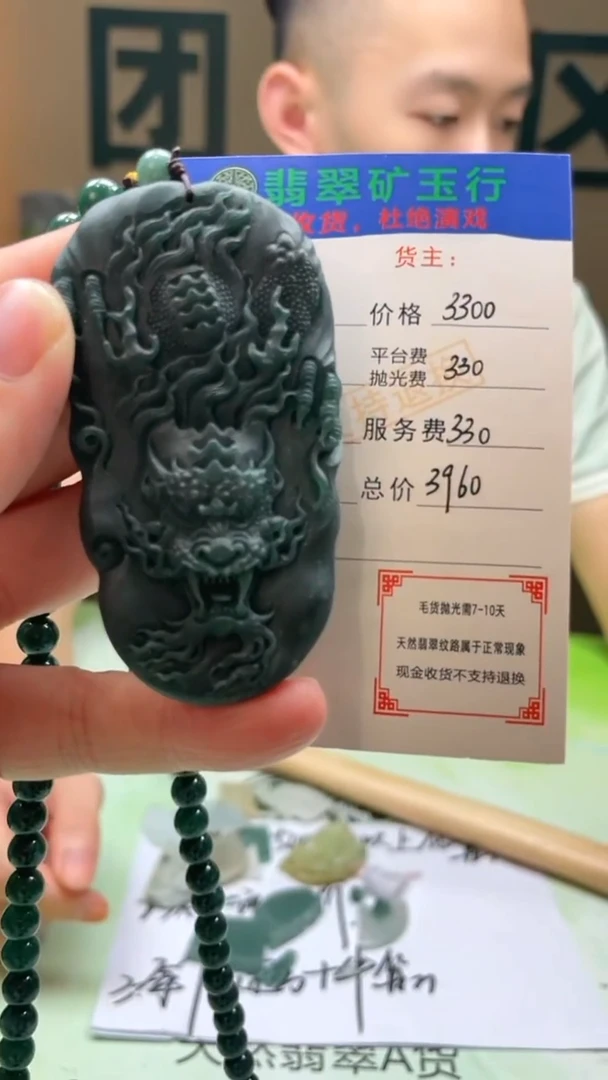 团
区
翡翠矿玉行
收货，杜绝演戏
货主：
价格 3300
平台费
抛光费 330
服务费 330
总价 3960
持退换
毛货抛光需7-10天
天然翡翠纹路属于正常现象
现金收货不支持退换
天然翡翠A货